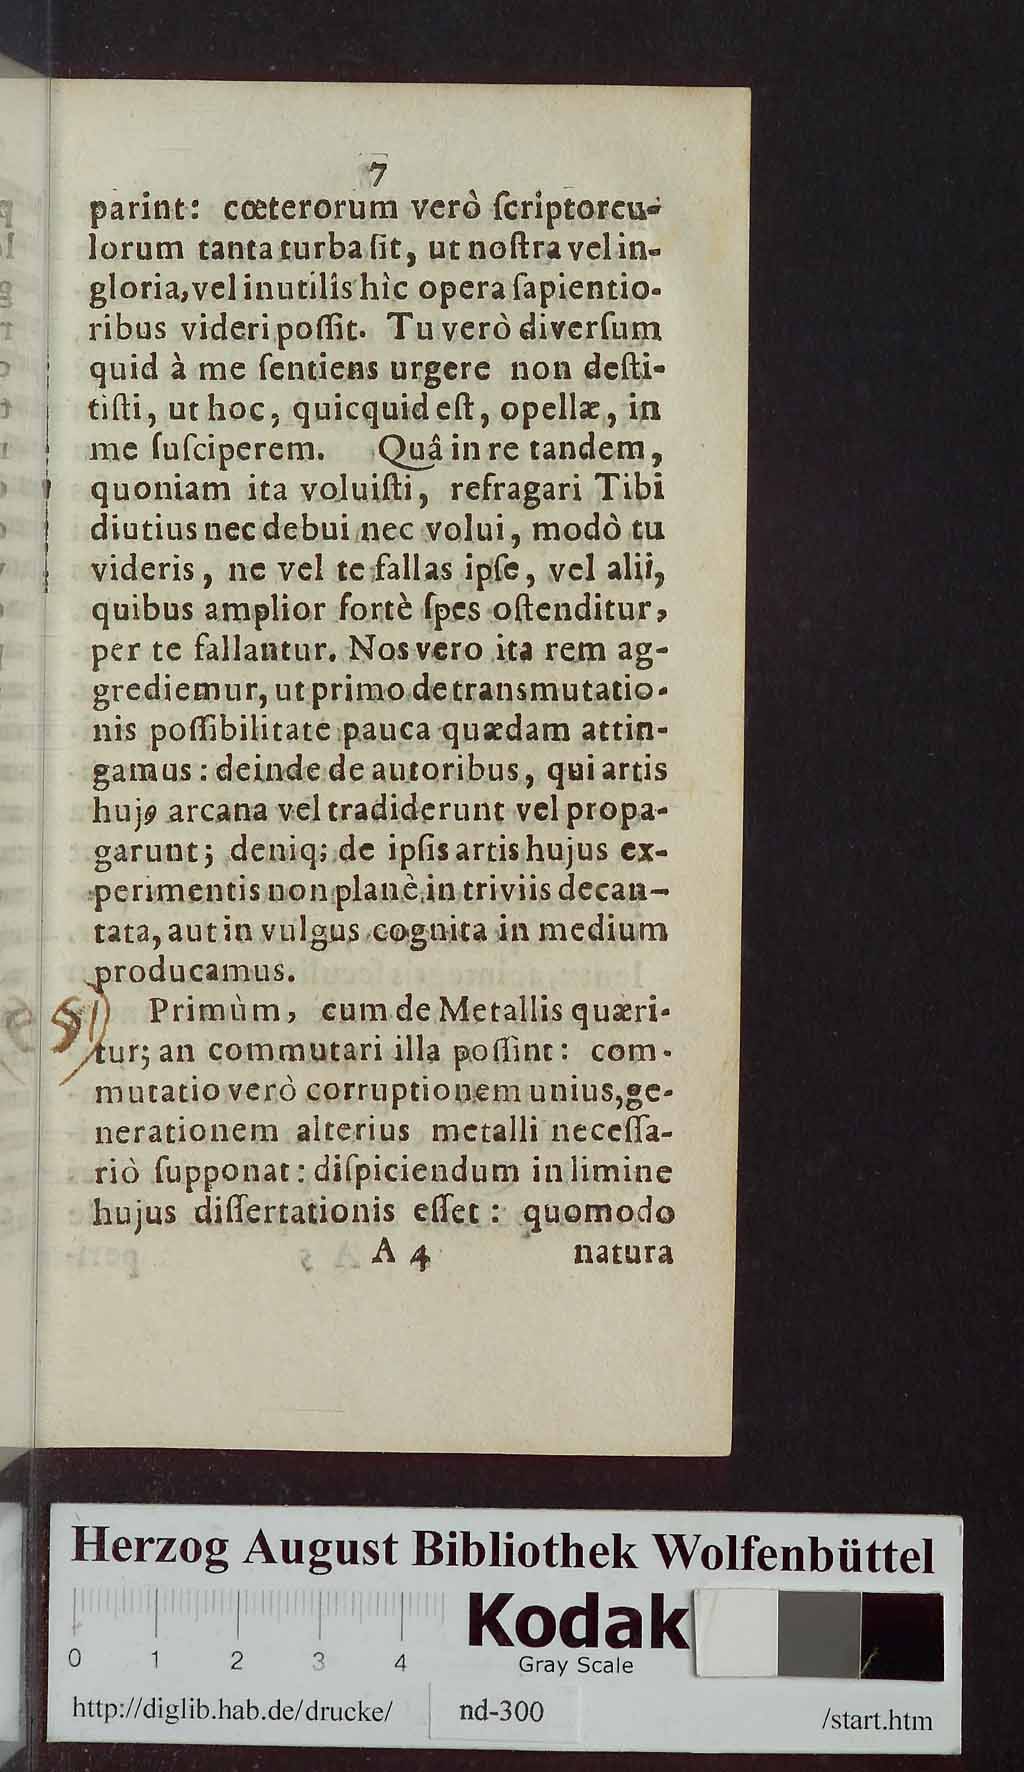 7
parint: cœterorum verò ſcriptorcu-
lorum tanta turba ſit, ut noſtra vel in-
gloria, vel inutilis hìc opera ſapientio-
ribus videri poſſit. Tu verò diverſum
quid à me ſentiens urgere non deſti-
tiſti, ut hoc, quicquid eſt, opellæ, in
me ſuſciperem. Quâ in re tandem,
quoniam ita voluiſti, refragari Tibi
diutius nec debui nec volui, modò tu
videris, ne vel te fallas ipſe, vel alii,
quibus amplior fortè ſpes oſtenditur,
per te fallantur. Nos vero ita rem ag-
grediemur, ut primo de transmutatio-
nis poſſibilitate pauca quædam attin-
gamus: deinde de autoribus, qui artis
hujꝰ arcana vel tradiderunt vel propa-
garunt; deniq; de ipſis artis hujus ex-
perimentis non planè in triviis decan-
tata, aut in vulgus cognita in medium
producamus.
Primùm, cum de Metallis quæri-
tur; an commutari illa poſſint: com-
mutatio verò corruptionem unius, ge-
nerationem alterius metalli neceſſa-
riò ſupponat: diſpiciendum in limine
hujus diſſertationis eſſet: quomodo
A 4 natura
Herzog August Bibliothek Wolfenbüttel
Kodak
Gray Scale
0 1 2 3 4
http://diglib.hab.de/drucke/ nd-300 /start.htm